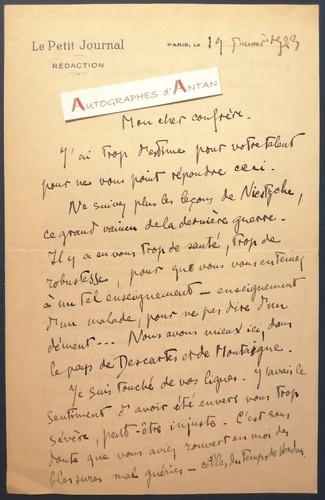 Le Petit Journal
RÉDACTION
PARIS, le 19 janvier 1923
AUTOGRAPHES d'ANTAN
Mon cher confrère.
J'ai trop d'estime pour votre talent
pour ne vous point répondre ceci.
Ne suivez plus les leçons de Nietzche,
ce grand vaincu de la dernière guerre.
Il y a en vous trop de santé, trop de
robustesse, pour que vous vous enteniez
à un tel enseignement – enseignement
d'un malade, pour ne pas dire d'un
dément... Nous avons mieux ici, dans
le pays de Descartes et de Montaigne.
Je suis touché de vos lignes. J'avais le
sentiment d'avoir été envers vous trop
sévère, peut-être injuste. C'est sans
doute que vous aviez rouvert en moi des
blessures mal guéries – celles du temps de Verdun